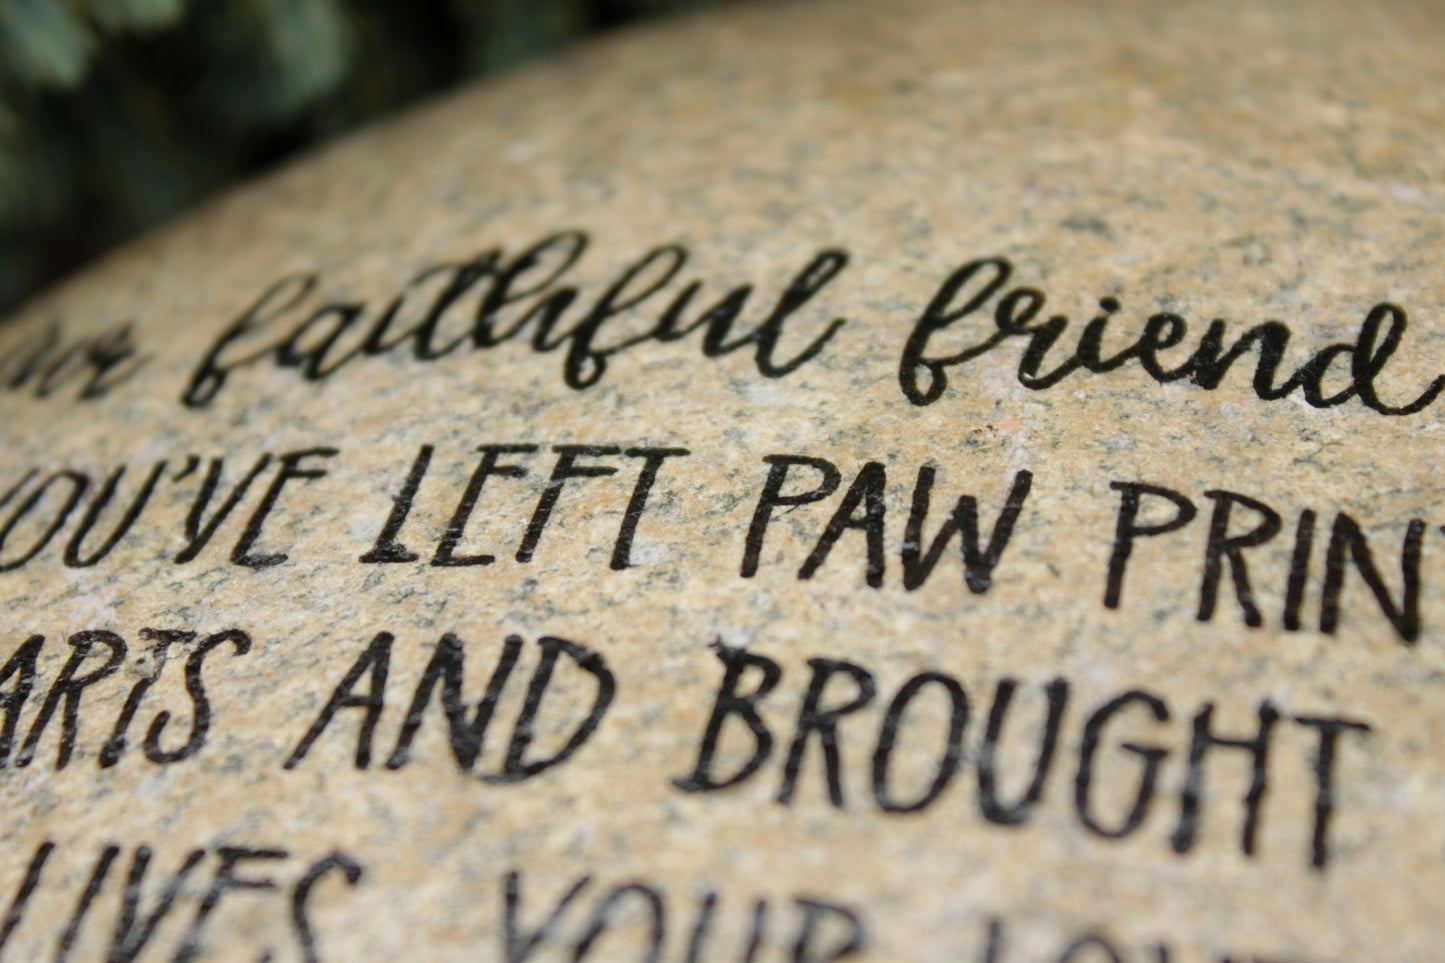 faithful friend
YOU'VE LEFT PAW PRIN
ARTS AND BROUGHT
LIVES YOUR